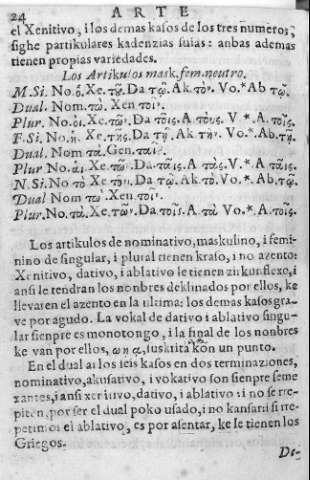 24 ARTE
el Xenitivo, i los demas kasos de los tres numeros,
sighe partikulares kadenzias suias: anbas ademas
tienen propias variedades.
Los Artikulos mask.fem.neutro.
M. Si. No.ὁ. Xe. τοῦ. Da τῷ. Ak. τόν. Vo.* Ab τῷ.
Dual. Nom. τώ. Xen τοῖν.
Plur. No.οἱ. Xe. τῶν. Da τοῖς. A. τούς. V *. A. τοῖς.
F. Si. No.ἡ. Xe. τῆς. Da τῇ. Ak τήν. Vo.*. Ab. τῇ.
Dual. Nom τά. Gen. ταῖν.
Plur No. αἱ. Xe. τῶν. Da. ταῖς. A τάς. V. *. A ταῖς.
N. Si. No τὸ Xe τοῦ. Da τῷ. Ak τό. Vo.*. Ab. τῷ.
Dual Nom τώ. Xen. τοῖν.
Plur. No. τὰ. Xe. τῶν. Da τοῖς. A τὰ Vo.*. A. τοῖς.
Los artikulos de nominativo, maskulino, i femi-
nino de singular, i plural tienen kraso, i no azento:
Xenitivo, dativo, i ablativo le tienen zirkunflexo, i
ansi le tendran los nonbres deklinados por ellos, ke
llevaren el azento en la ultima: los demas kasos gra-
ve por agudo. La vokal de dativo i ablativo singu-
lar sienpre es monotongo, i la final de los nonbres
ke van por ellos, ω η α, suskrita kon un punto.
En el dual ai los seis kasos en dos terminaziones,
nominativo, akusativo, i vokativo son sienpre seme
xantes, i ansi xenitivo, dativo, i ablativo: i no se rre-
piten, por ser el dual poko usado, i no kansarii si rre-
petimos el ablativo, es por asentar, ke le tienen los
Griegos.
De-